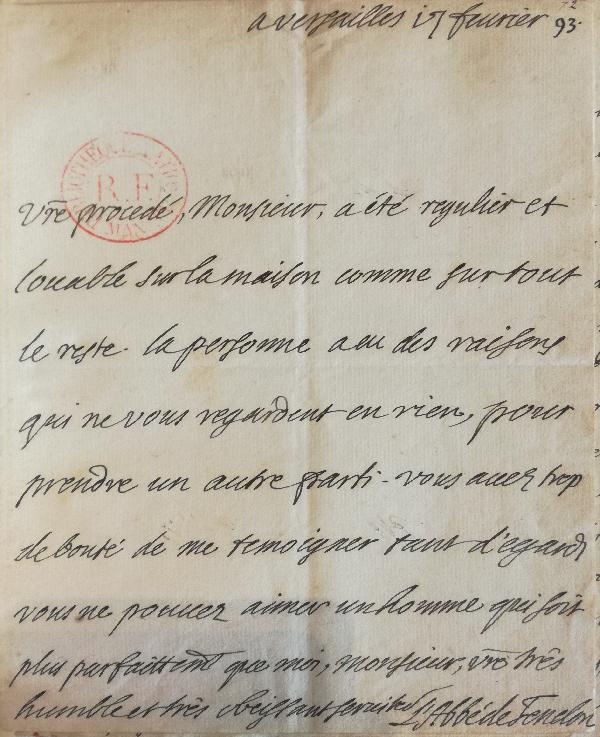 a versailles 17 feurier 93.
72
BIBLIOTHEQUE NATIONALE
R.F.
MAN
Vrẽ procedé, Monsieur, a été regulier et
louable sur la maison comme sur tout
le reste. la personne a eu des raisons
qui ne vous regardent en rien, pour
prendre un autre parti. vous auez trop
de bonté de me temoigner tant d'egards
vous ne pouuez aimer un homme qui soit
plus parfaittemt que moi, monsieur, vrẽ très
humble et très obeissant seruiteur L'Abbé de Fenelon